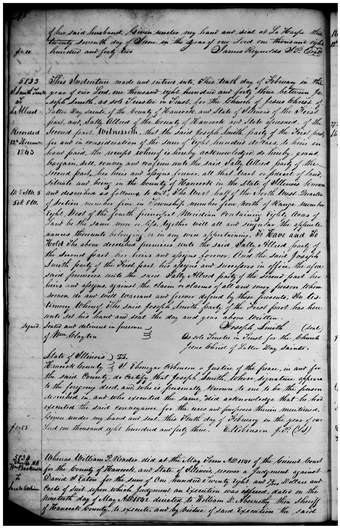 of his said husband. Given under my hand and seal at La Harpe this
twenty seventh day of June in the year of our Lord one thousand eight
hundred and forty two
James Reynolds
5233
This Indenture made and entered into this tenth day of February in the
year of our Lord one thousand eight hundred and forty three between Jo-
seph Smith, as sole Trustee in Trust, for the Church of Jesus Christ of
Latter Day Saints, of the County of Hancock, and State of Illinois of the First
part, and Sally Allred of the County of Hancock and State aforesaid, of the
Second part. Witnesseth, that the said Joseph Smith party of the First part
for and in consideration of the sum of eighty hundred dollars, to him in
hand paid, the receipt whereof is hereby acknowledged do hereby grant
bargain, sell, convey and confirm unto the said Sally Allred party of the
second part, her heirs and assigns forever, all that tract or parcel of land
situate and being in the county of Hancock in the State of Illinois known
and described as follows to wit, The West half of the North West Quarter
of Section number five in Township number five North of Range number
eight West of the fourth principal Meridian containing eighty acres of
Land be the same more or less, together with all and singular the appurte
nances thereunto belonging or in any wise appertaining, To Have and To
Hold the above described premises unto the said Sally Allred party of
the second part her heirs and assigns forever. And the said Joseph
Smith party of the First part his and successors in office, the afore
said premises unto the said Sally Allred party of the second part, her
heirs and assigns, against the claim or claims of all and every person whom
soever, do and will warrant and forever defend by these presents. In tes
timony Whereof, The said Joseph Smith party of the First part has here
unto set his hand and seal the day and year above Written
Signed Sealed and delivered in presence
of Wm. Clayton
Joseph Smith (Seal)
As sole Trustee in Trust for the Church
Jesus Christ of Latter Day Saints
State of Illinois
Hancock County
I Ebenezer Robinson a Justice of the peace, in and for
the said County do certify that Joseph Smith, whose signature appears
to the foregoing deed, and who is personally known to me to be the person
described in, and who executed the same, did acknowledge that he had
executed the said conveyance for the uses and purposes therein mentioned.
Given under my hand and seal, this tenth day of February in the year of our
Lord one thousand eight hundred and forty three.
E Robinson J.P. (LS)
5234
Whereas William F. Reader did at the May Term AD 1841 of the Circuit Court
for the County of Hancock, and State of Illinois recover a Judgement against
David A. Eaton for the sum of One hundred twenty eight and Dollars and
Costs of suit upon which Judgement an execution was issued, dated on the
nineteenth day of May AD 1841 directed to William D. Abernethy then Sheriff
of Hancock County, to execute, and by virtue of said Execution the said